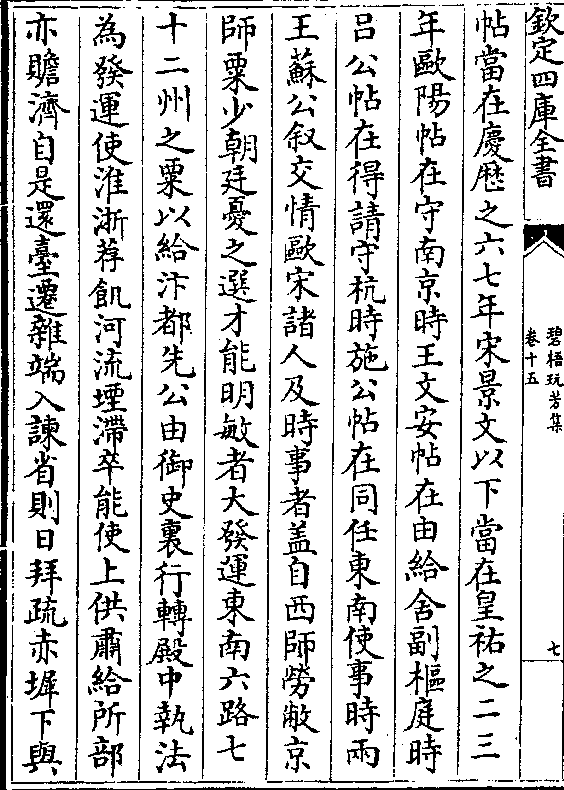 欽定四庫全書
碧梧玩芳集
卷十五
七
帖當在慶歷之六七年宋景文以下當在皇祐之二三
年歐陽帖在守南京時王文安帖在由給舍副樞庭時
吕公帖在得請守杭時施公帖在同任東南使事時兩
王蘇公叙交情歐宋諸人及時事者盖自西師勞敝京
師粟少朝廷憂之選才能明敏者大發運東南六路七
十二州之粟以給汴都先公由御史裏行轉殿中執法
為發運使淮浙荐飢河流堙滯卒能使上供肅給所部
亦贍濟自是還臺遷雜端入諫省則日拜疏赤墀下與